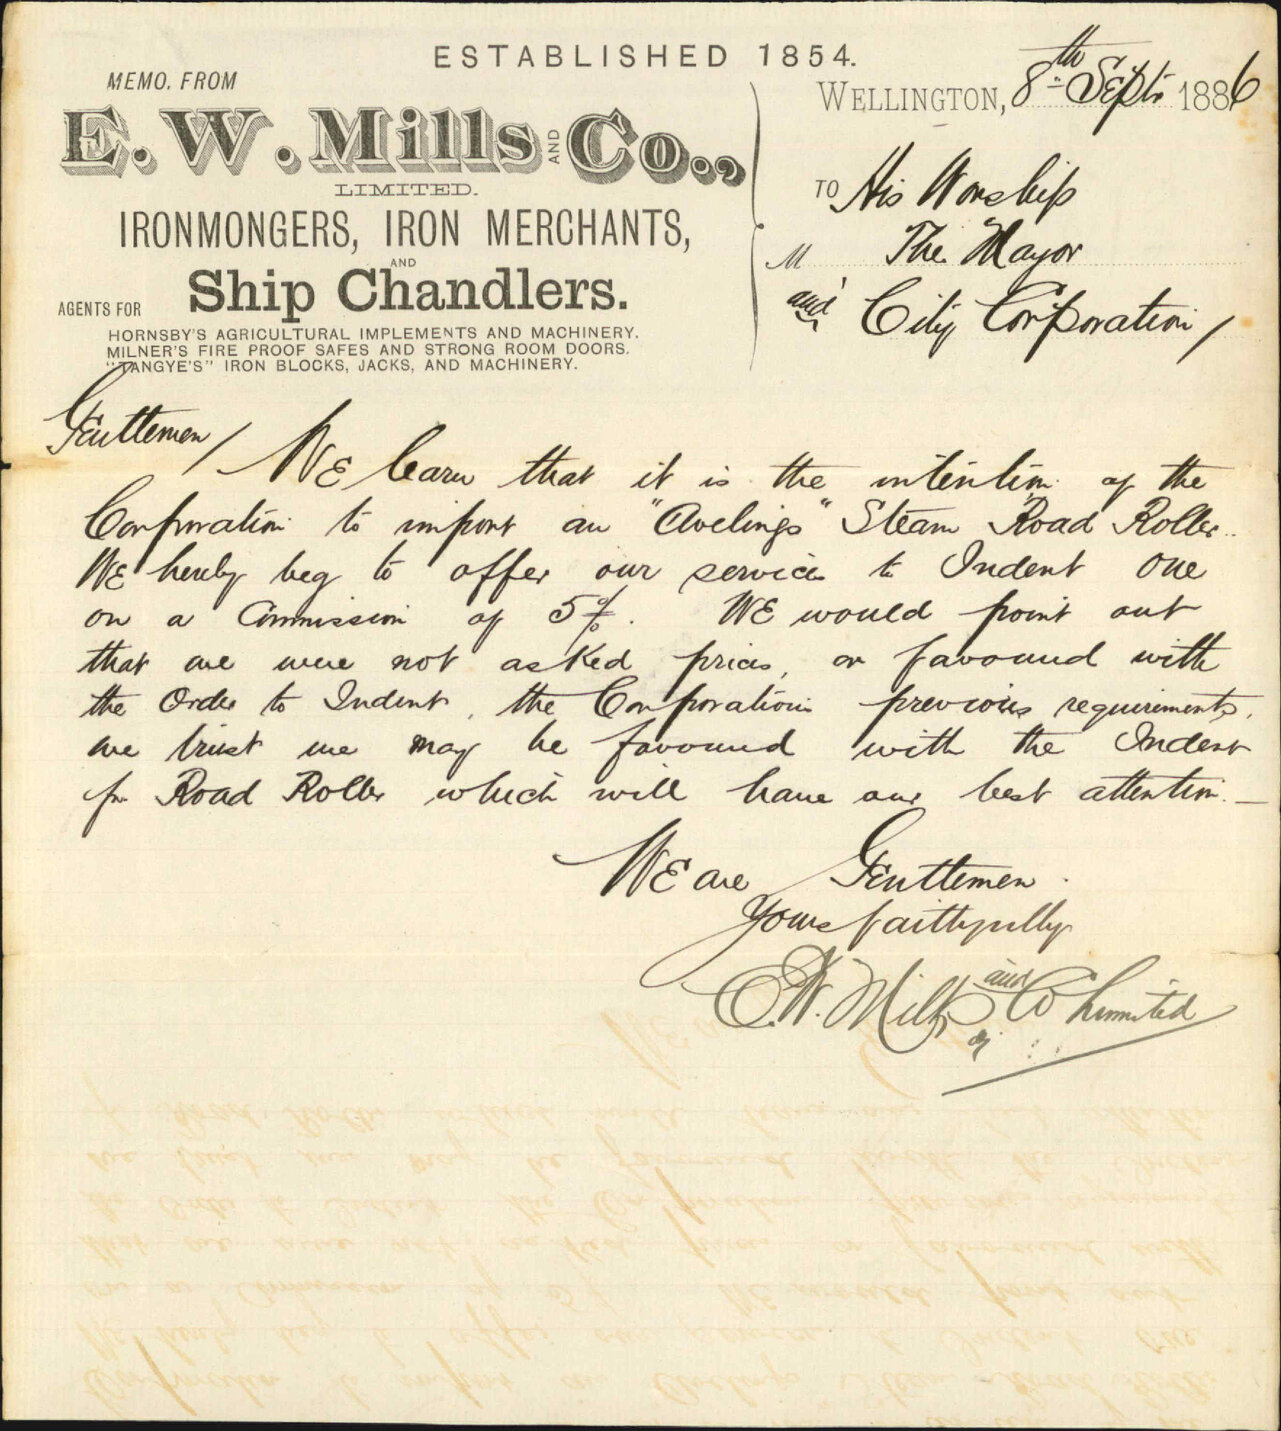 ESTABLISHED 1854.
MEMO. FROM
E. W. Mills AND Co.,
LIMITED.
IRONMONGERS, IRON MERCHANTS,
AND
Ship Chandlers.
AGENTS FOR
HORNSBY'S AGRICULTURAL IMPLEMENTS AND MACHINERY.
MILNER'S FIRE PROOF SAFES AND STRONG ROOM DOORS.
"TANGYE'S" IRON BLOCKS, JACKS, AND MACHINERY.
WELLINGTON, 8th Septr 1886
TO His Worship
M The Mayor
and City Corporation/
Gentlemen/
We learn that it is the intention of the
Corporation to import an "Avelings" Steam Road Roller.
We hereby beg to offer our services to Indent one
on a Commission of 5%. We would point out
that we were not asked prices, or favoured with
the Order to Indent, the Corporations previous requirements,
we trust we may be favoured with the Indent
for Road Roller which will have our best attention. —
We are Gentlemen
Yours faithfully
E.W. Mills and Co Limited